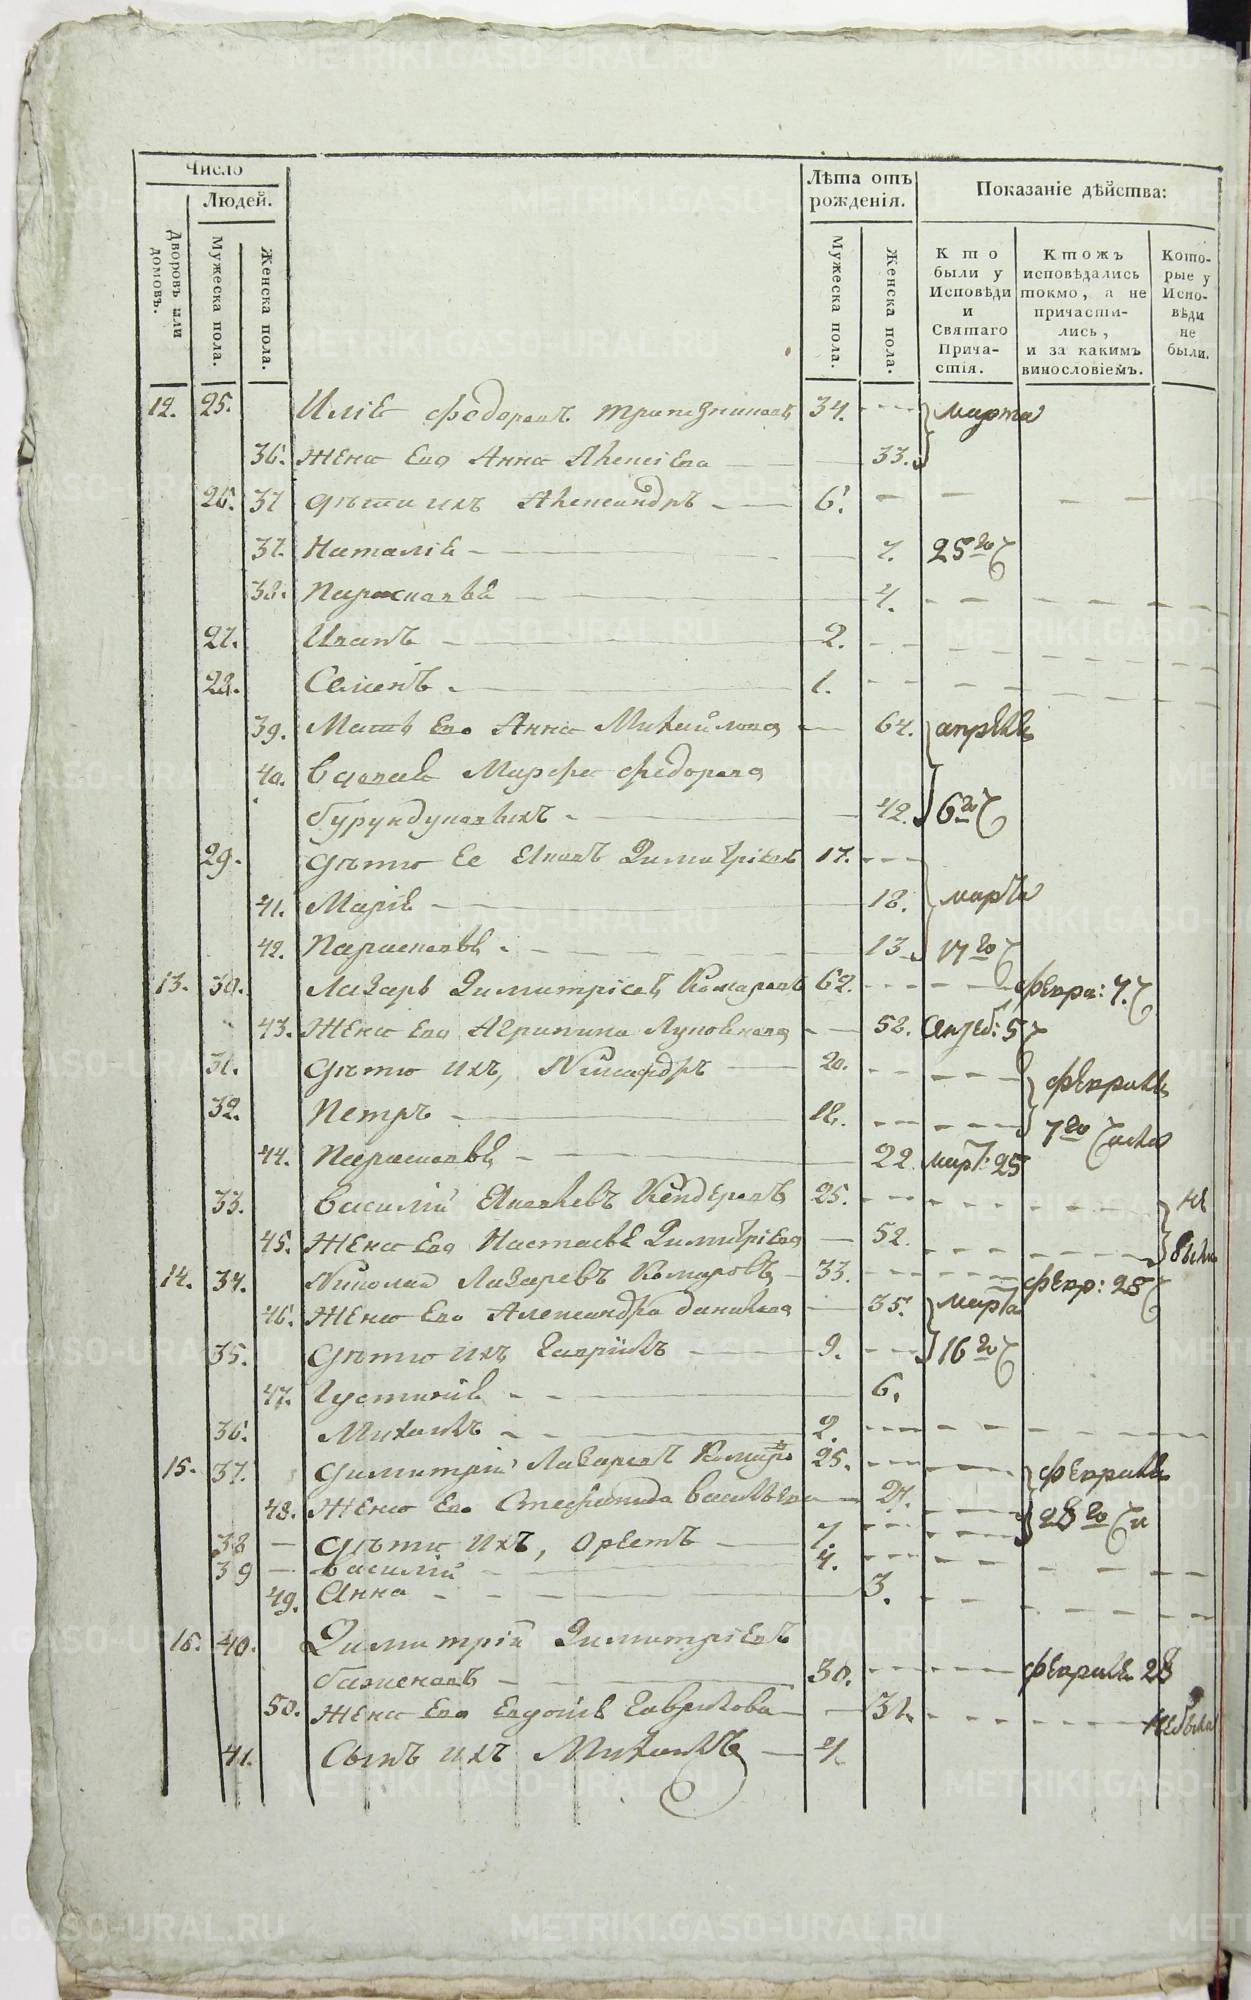 Число
Людей.
Дворовъ или домовъ.
Мужеска пола.
Женска пола.
Лѣта отъ рожденія.
Мужеска пола.
Женска пола.
Показаніе дѣйства:
Кто были у Исповѣди и Святаго Прича-стія.
Ктожъ исповѣдались токмо, а не причасти-лись, и за какимъ винословіемъ.
Кото-рые у Испо-вѣди не были.
12. 25. Иліа Федоровъ Трапезниковъ 34. марта
36. Жена Его Анна 33.
26. 37 Дѣти ихъ Александръ 6.
37. Наталіа 7. 25го
38. Парасковіа 4.
27. Иванъ 2.
28. Семенъ 1.
39. Мать Его Анна Михайлова 64. апрѣля
40. Вдова Марфа Федорова
Бурундуковыхъ 42. 6го
29. Дѣти Ее Іаковъ Димитріевъ 17.
41. Маріа 18. марта
42. Парасковіа 13. 17го
13. 30. Лазарь Димитріевъ Комаровъ 62. февра: 7.
43. Жена Его Агрипина 52. 5
31. Дѣти ихъ, 20. февраля
32. Петръ 18. 7го числа
44. Парасковіа 22. март: 25
33. Василій Іаковлевъ 25. не
45. Жена Его Настасьа Димитріева 52. были
14. 34. Николай Лазаревъ Комаровъ 33. февр: 28
46. Жена Его Александра Данилова 35. марта
35. Дѣти ихъ Гавріилъ 9. 16го
47. 6.
36. Михаилъ 2.
15. 37. Димитрій Лазаревъ Комаровъ 25. февраля
48. Жена Его Стефанида Васильева 27. 28го
38 Дѣти ихъ, 7.
39 Василій 4.
49. Анна 3.
16. 40. Димитрій Димитріевъ
Баженовъ 30. февраля 28
50. Жена Его Евдокіа Гаврилова 31. небыла
41. Сынъ ихъ Михаилъ 4.
METRIKI.GASO-URAL.RU